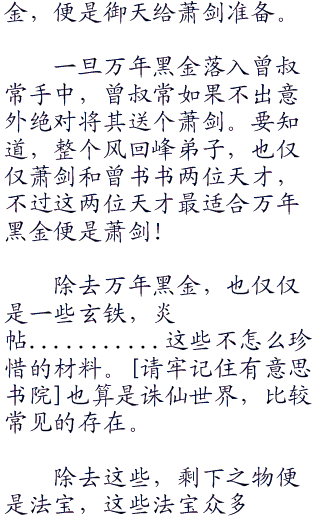 金，便是御天给萧剑准备。
一旦万年黑金落入曾叔
常手中，曾叔常如果不出意
外绝对将其送个萧剑。要知
道，整个风回峰弟子，也仅
仅萧剑和曾书书两位天才，
不过这两位天才最适合万年
黑金便是萧剑！
除去万年黑金，也仅仅
是一些玄铁，炎
帖...........这些不怎么珍
惜的材料。[请牢记住有意思
书院]也算是诛仙世界，比较
常见的存在。
除去这些，剩下之物便
是法宝，这些法宝众多